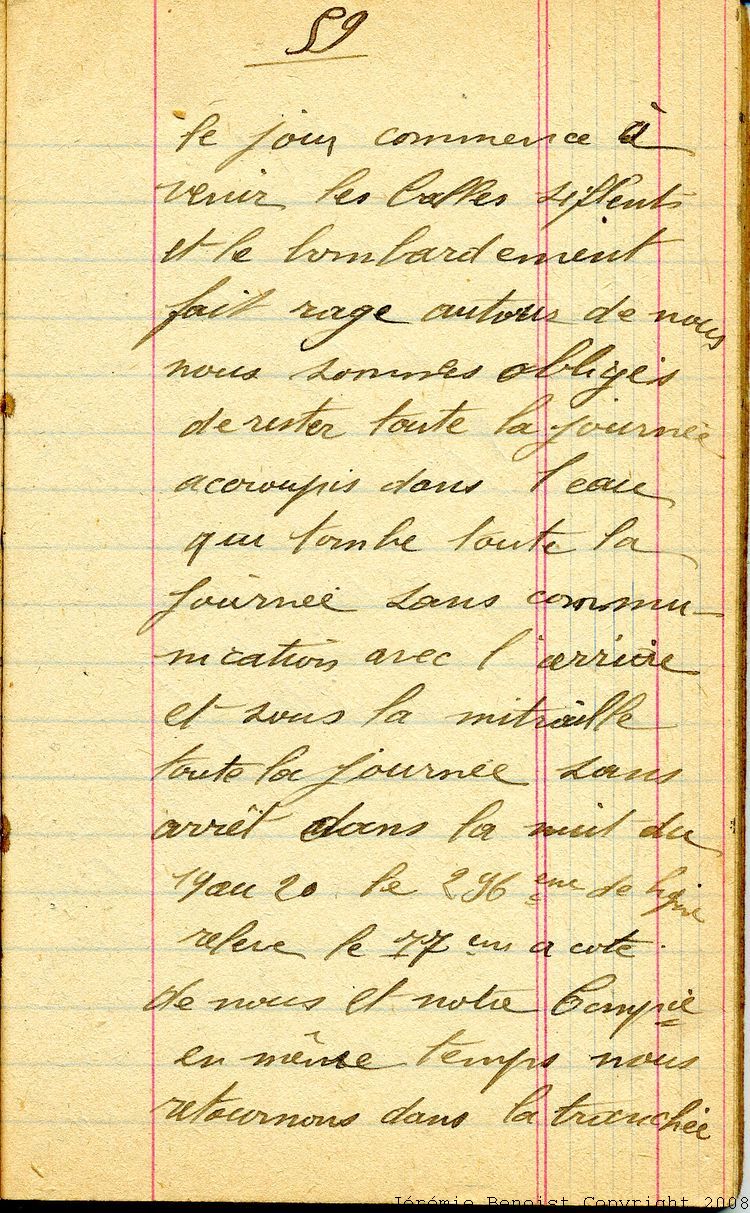 59
le jour commence à
venir les balles siflents
et le bombardement
fait rage autour de nous
nous sommes obligés
de rester toute la journée
accroupis dans l'eau
qui tombe toute la
journée sans commu-
nication avec l'arrière
et sous la mitraille
toute la journée sans
arrêt dans la nuit du
19 au 20 le 296 eme de ligne
releve le 77 em a cote
de nous et notre Compie
en même temps nous
retournons dans la tranchée
Jérémie Benoist Copyright 2008